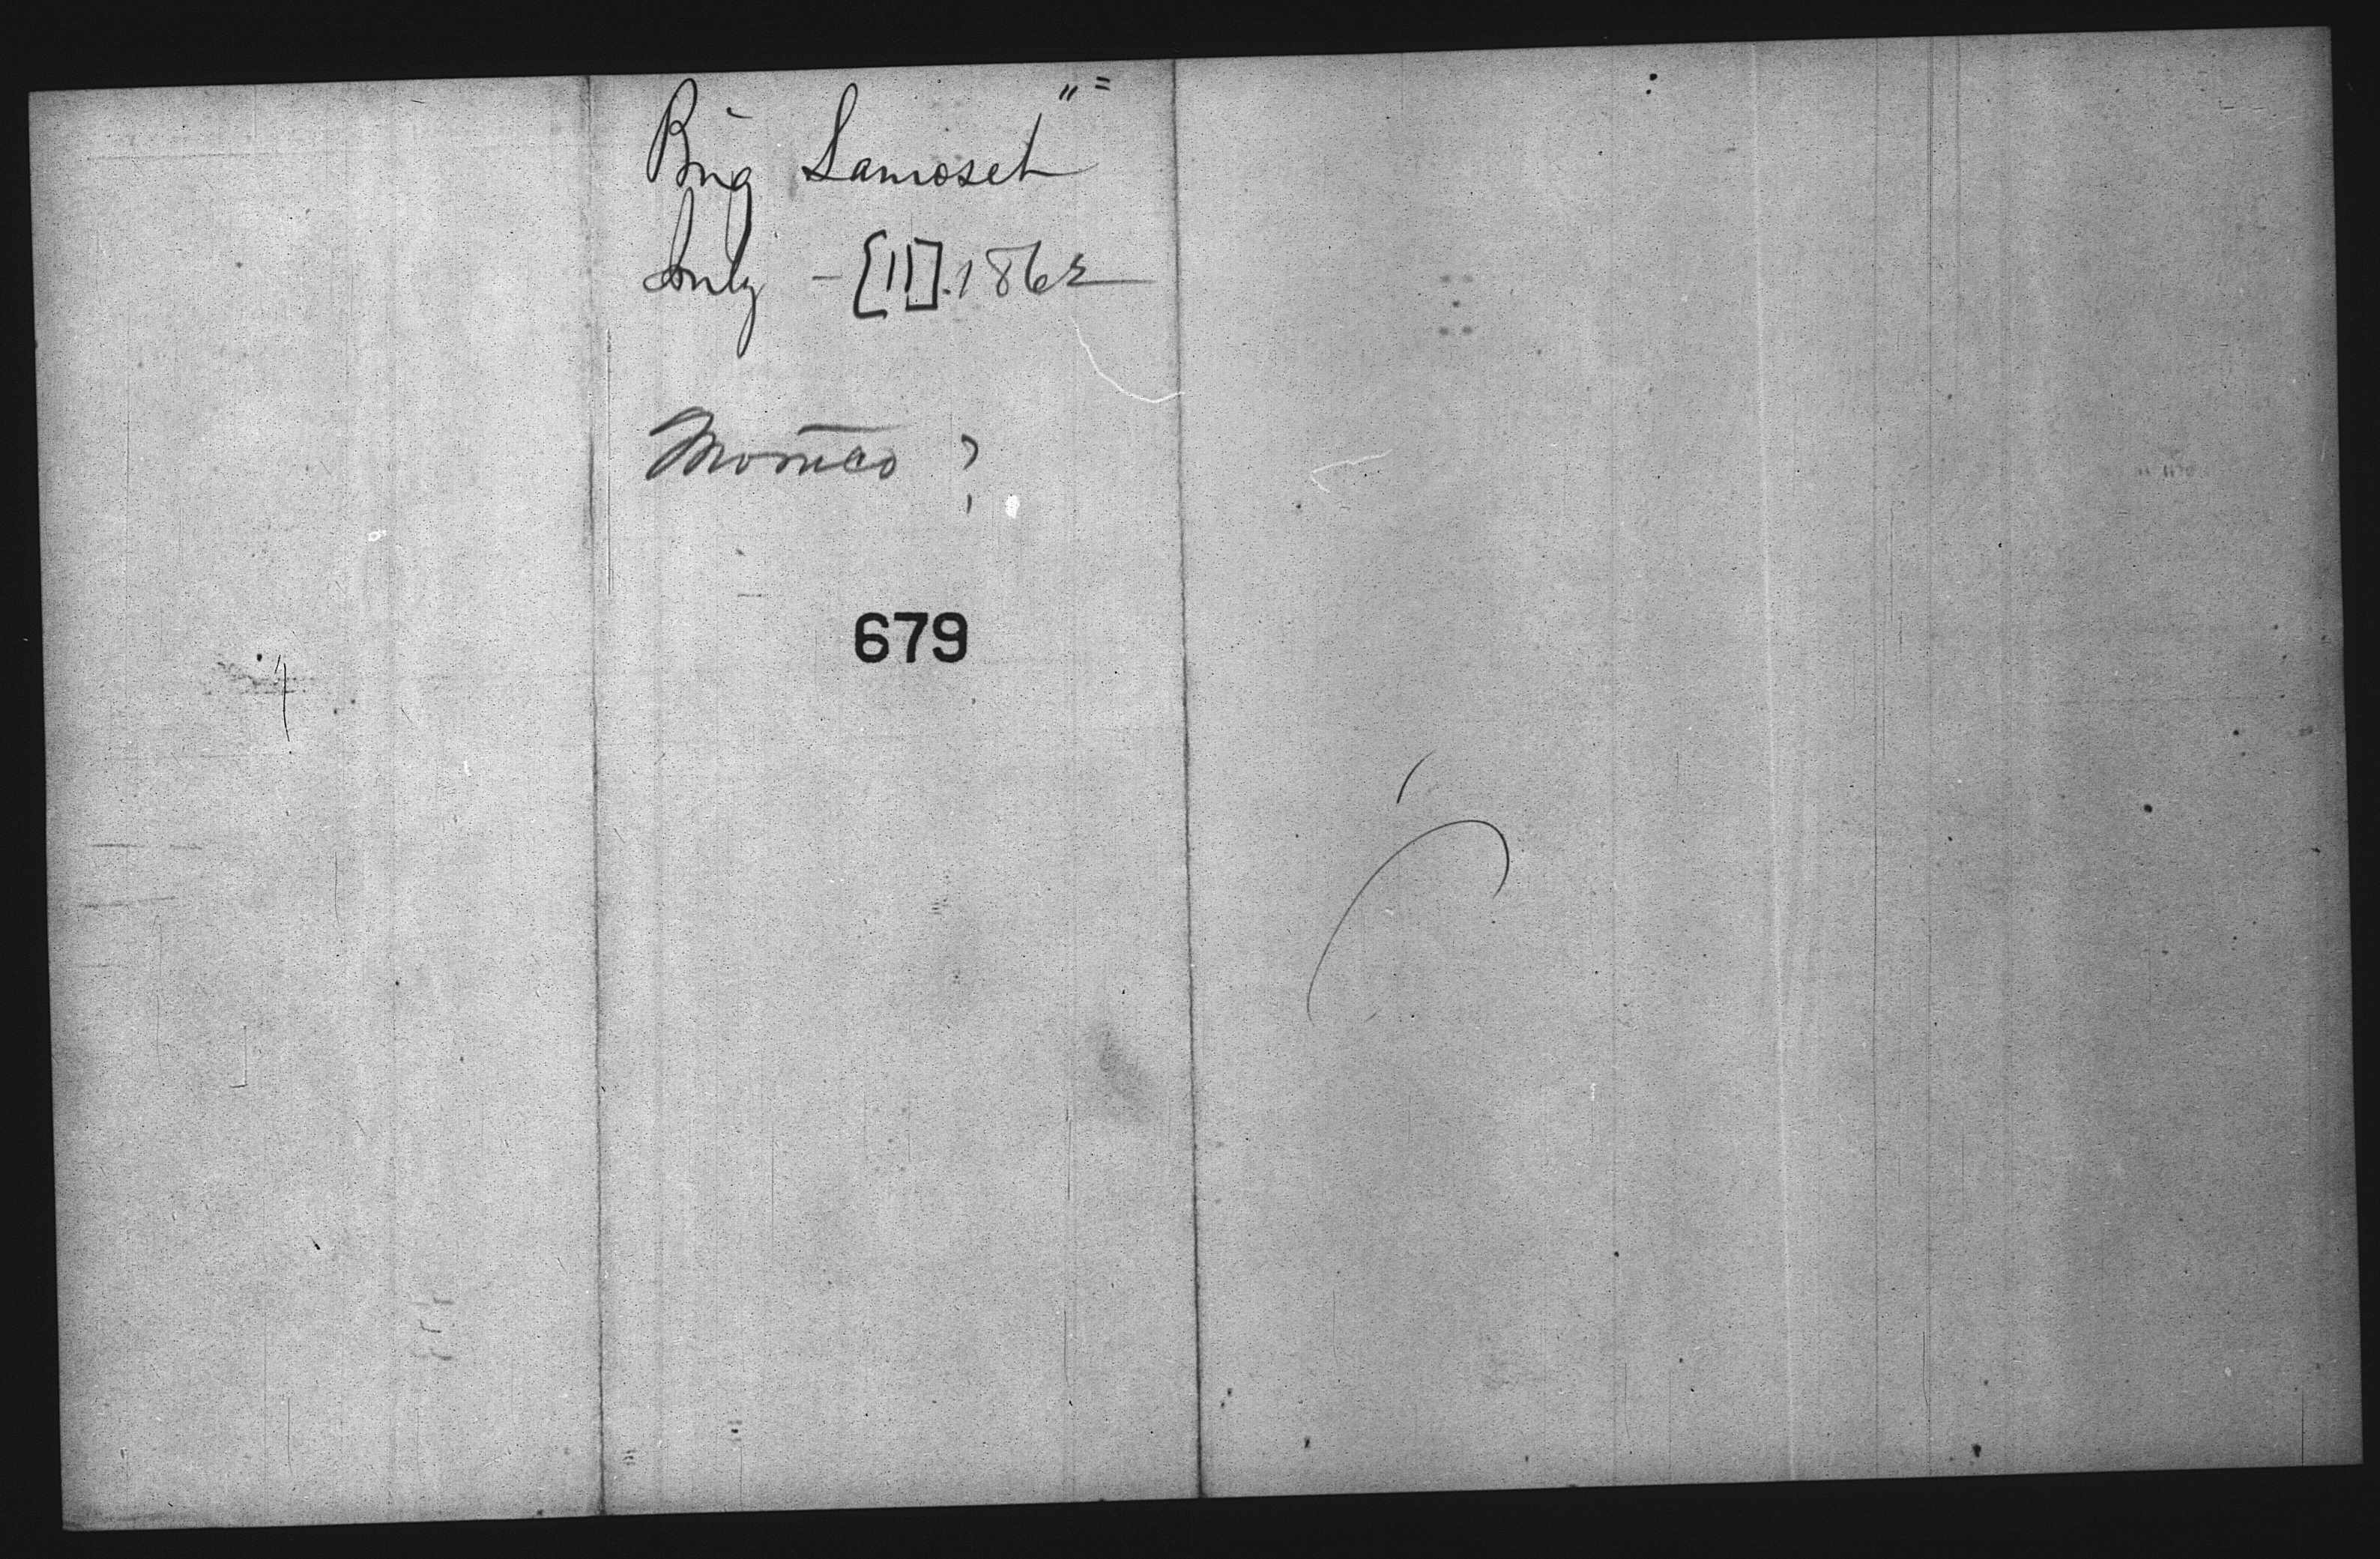 Brig Samoset
July - [11]. 1862
?
679